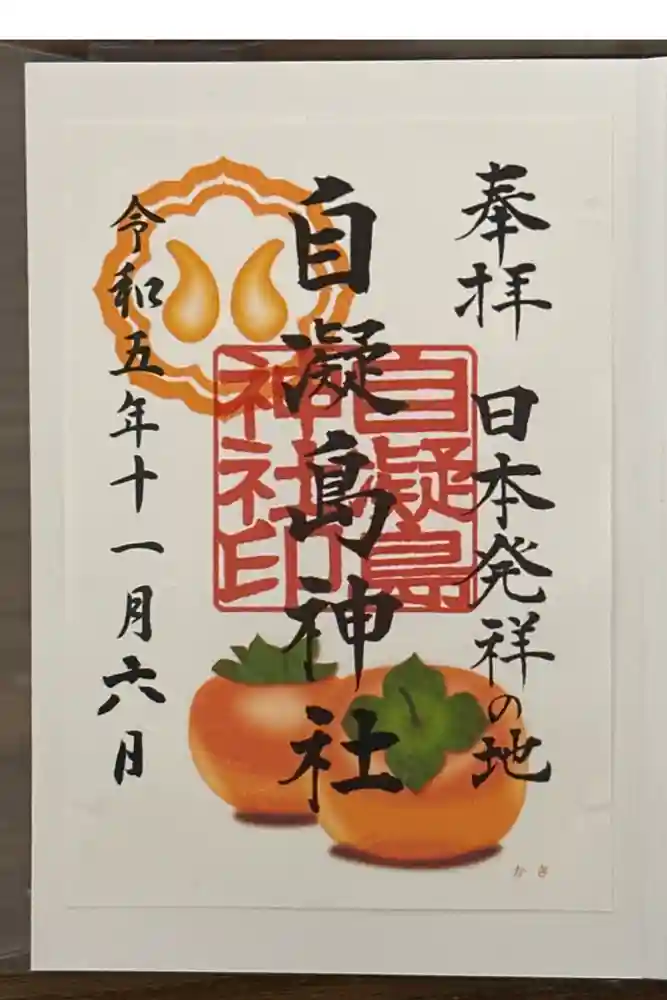 奉拝 日本発祥の地
自凝島神社
自凝島
神社印
令和五年十一月六日
かき